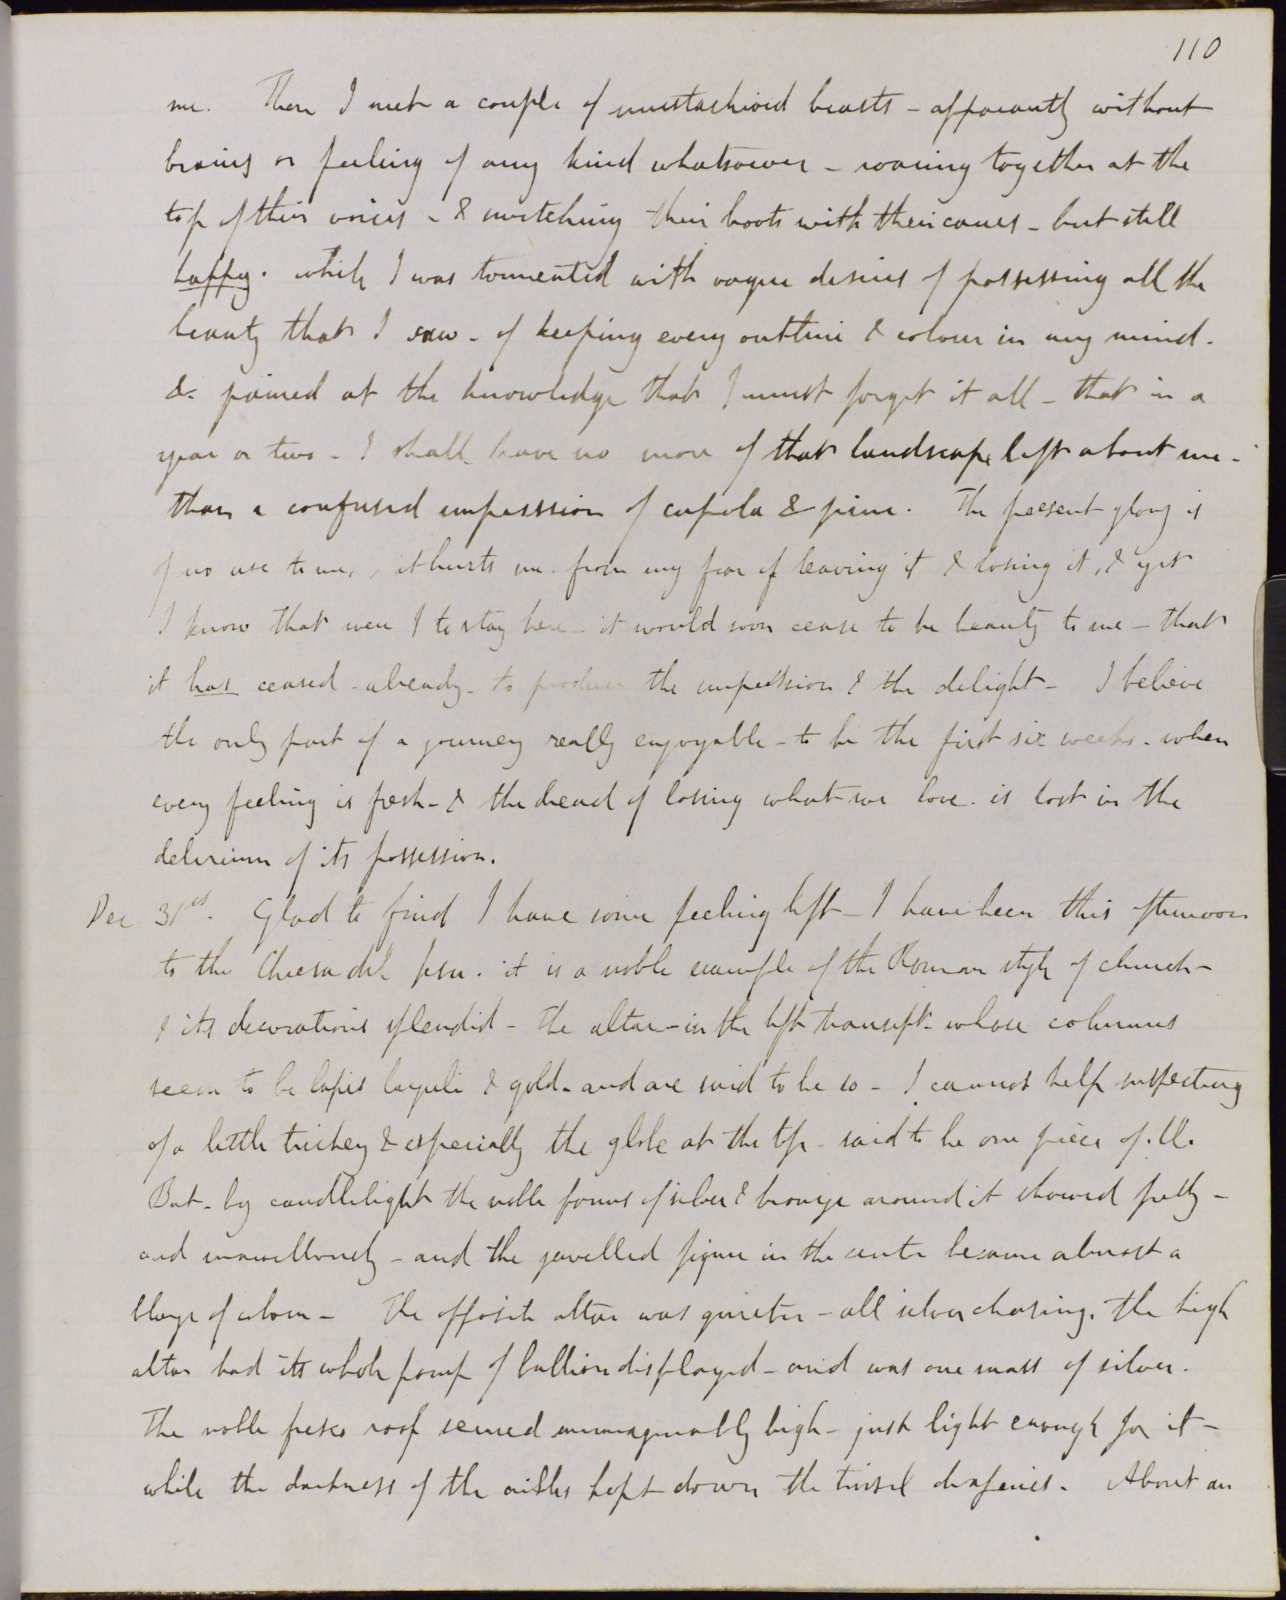 110
me. Then I met a couple of mustachioed beasts - apparently without
brains or feeling of any kind whatsoever - roaring together at the
top of their voices - & switching their boots with their canes - but still
happy. while I was tormented with vague desires of possessing all the
beauty that I saw - of keeping every outline & colour in my mind.
& pained at the knowledge that I must forget it all - that in a
year or two - I shall have no more of that landscape left about me -
than a confused impression of cupola & pine. The present glory is
of no use to me, it hurts me from my fear of leaving it & losing it, & yet
I know that were I to stay here - it would soon cease to be beauty to me - that
it has ceased - already - to produce the impression & the delight - I believe
the only part of a journey really enjoyable - to be the first six weeks - when
every feeling is fresh - & the dread of losing what we love is lost in the
delirium of its possession.
Dec 31st. Glad to find I have some feeling left - I have been this afternoon
to the Chiesa del Jesu. it is a noble example of the Roman style of church -
& its decorations splendid - The altar - in the left transept - whose columns
seem to be lapis lazuli & gold - and are said to be so - I cannot help suspecting
of a little trickery & especially the globe at the top - said to be one piece of.
But - by candlelight the noble forms of silver & bronze around it showed
and marvellously - and the jewelled figure in the centre became almost a
blaze of colour - The opposite altar was quieter - all silver chasing. The high
altar had its whole pomp of bullion displayed - and was one mass of silver.
The noble fresco roof seemed unimaginably high - just light enough for it -
while the darkness of the aisles kept down the tinsel draperies. About an